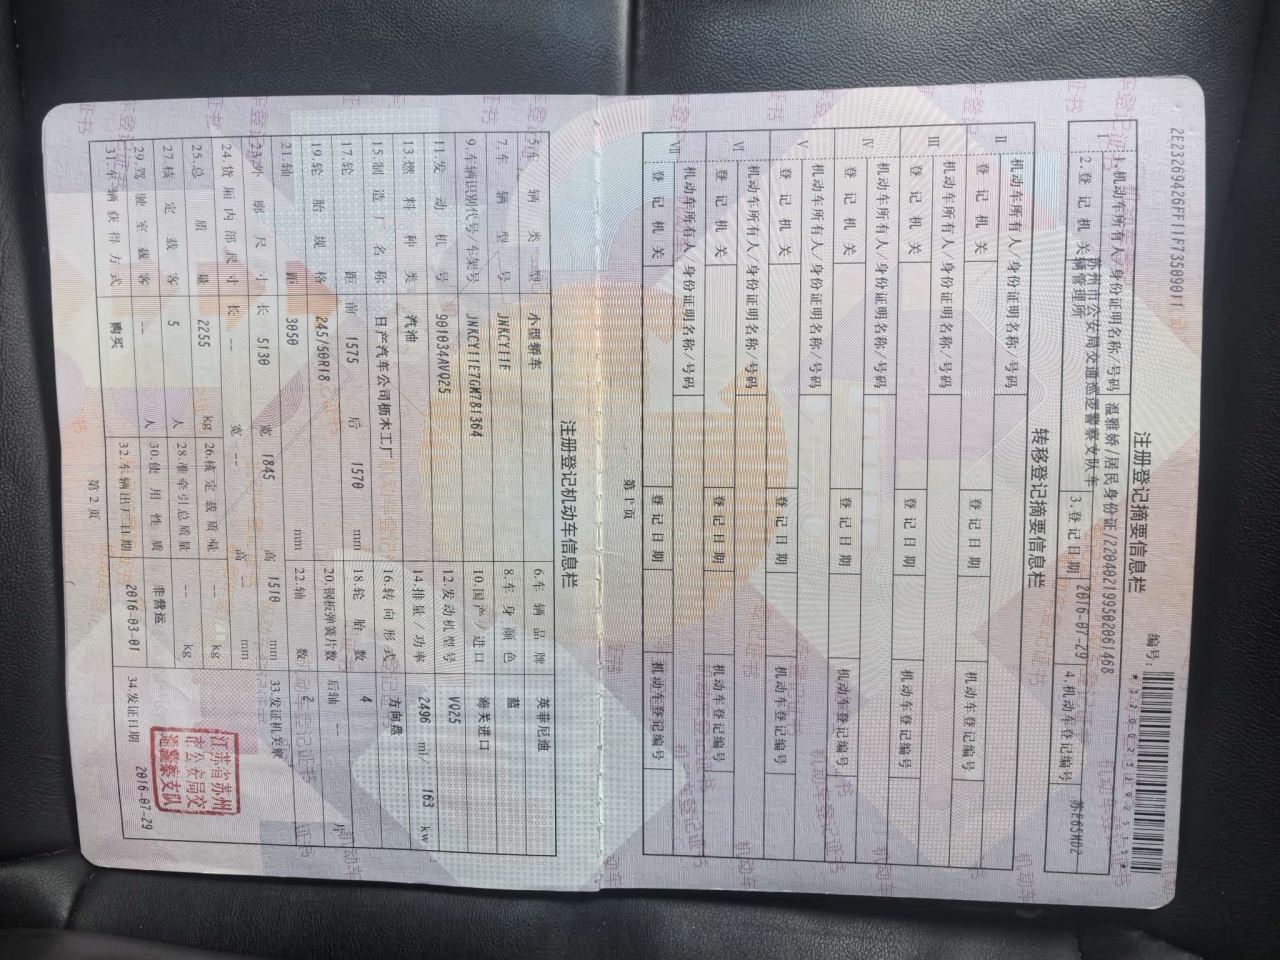 2E23269426FF11F73509011
注册登记摘要信息栏
编号:
I
1.机动车所有人/身份证明名称/号码 温雅娇/居民身份证/220402199502061468
2.登记机关 苏州市公安局交通巡逻警察支队车辆管理所 3.登记日期 2016-07-29 4.机动车登记编号 苏E65MD2
转移登记摘要信息栏
II 机动车所有人/身份证明名称/号码
登记机关 登记日期 机动车登记编号
III 机动车所有人/身份证明名称/号码
登记机关 登记日期 机动车登记编号
IV 机动车所有人/身份证明名称/号码
登记机关 登记日期 机动车登记编号
V 机动车所有人/身份证明名称/号码
登记机关 登记日期 机动车登记编号
VI 机动车所有人/身份证明名称/号码
登记机关 登记日期 机动车登记编号
VII 机动车所有人/身份证明名称/号码
登记机关 登记日期 机动车登记编号
第 1 页
注册登记机动车信息栏
5.车辆类型 小型轿车 6.车辆品牌 英菲尼迪
7.车辆型号 JNKCY11E 8.车身颜色 蓝
9.车辆识别代号/车架号 JNKCY11E7GM781364 10.国产/进口 海关进口
11.发动机号 901034AVQ25 12.发动机型号 VQ25
13.燃料种类 汽油 14.排量/功率 2496 ml/ 163 kw
15.制造厂名称 日产汽车公司枥木工厂 16.转向形式 方向盘
17.轮距 前 1575 后 1570 mm 18.轮胎数 4
19.轮胎规格 245/50R18 20.钢板弹簧片数 后轴 -- 片
21.轴距 3050 mm 22.轴数 2
23.外廓尺寸 长 5130 宽 1845 高 1510 mm
24.货厢内部尺寸 长 -- 宽 -- 高 -- mm
25.总质量 2255 kg 26.核定载质量 -- kg
27.核定载客 5 人 28.准牵引总质量 -- kg
29.驾驶室载客 -- 人 30.使用性质 非营运
31.车辆获得方式 购买 32.车辆出厂日期 2016-03-01
33.发证机关章
江苏省苏州
市公安局交
通警察支队
34.发证日期 2016-07-29
第 2 页